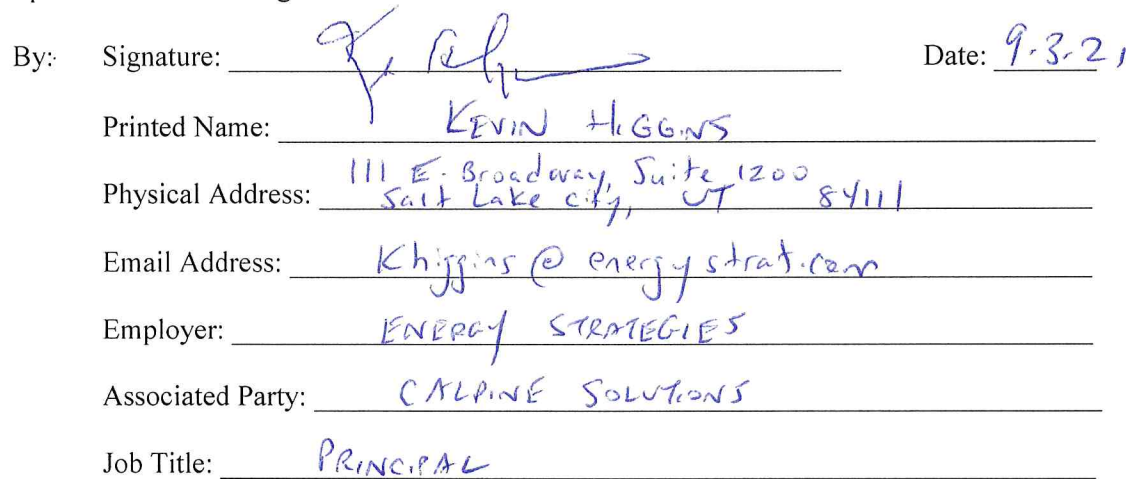 By: Signature: Date: 9.3.21
Printed Name: KEVIN HIGGINS
111 E. Broadway, Suite 1200
Physical Address: Salt Lake City, UT 84111
Email Address: Khiggins@energystrat.com
Employer: ENERGY STRATEGIES
Associated Party: CALPINE SOLUTIONS
Job Title: PRINCIPAL